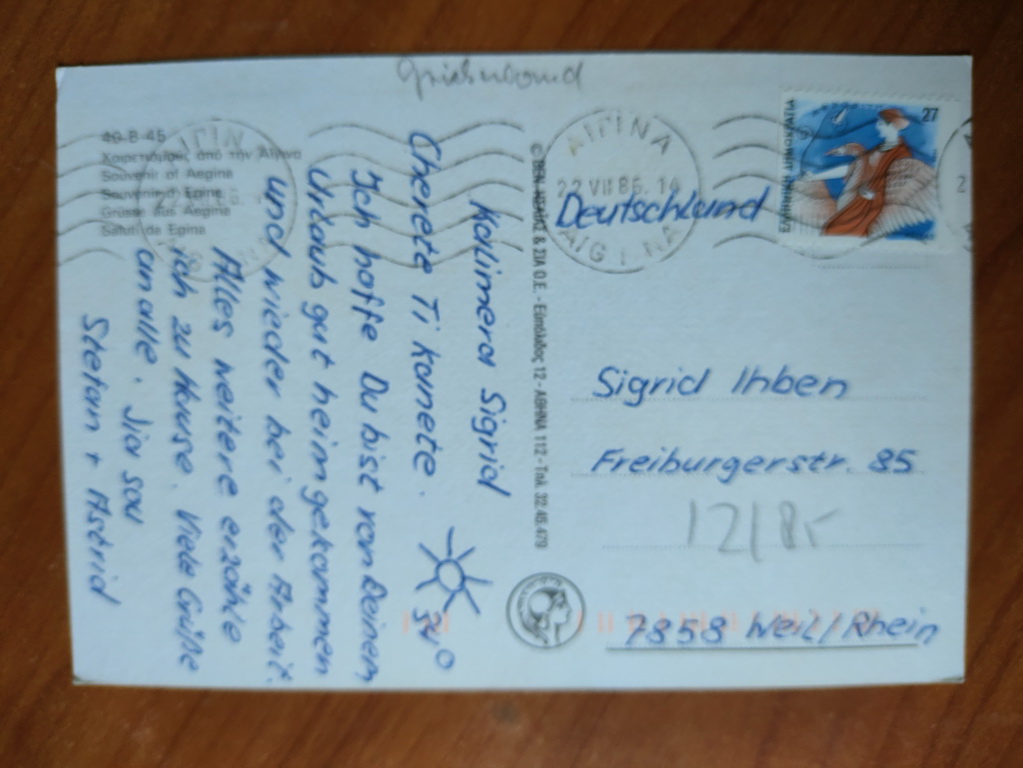 Griechenland
49-8-45
Χαιρετισμούς από την Αίγινα
Souvenir of Aegina
Souvenir d' Egine
Grüsse aus Aegina
Saluti da Egina
Kalimera Sigrid
Cherete Ti kanete.
34°
Ich hoffe Du bist von Deinem
Urlaub gut heimgekommen
und wieder bei der Arbeit.
Alles weitere erzähle
ich zu Hause. Viele Grüße
an alle. Jia sou
Stefan + Astrid
& ΣΙΑ Ο.Ε. - Εύπόλιδος 12 - ΑΘΗΝΑ 112 - Τηλ. 32.45.479
ΑΙΓΙΝΑ
22 VII 86. 14
AIGINA
27
Deutschland
Sigrid Ihben
Freiburgerstr. 85
12/85
7858 Weil/Rhein